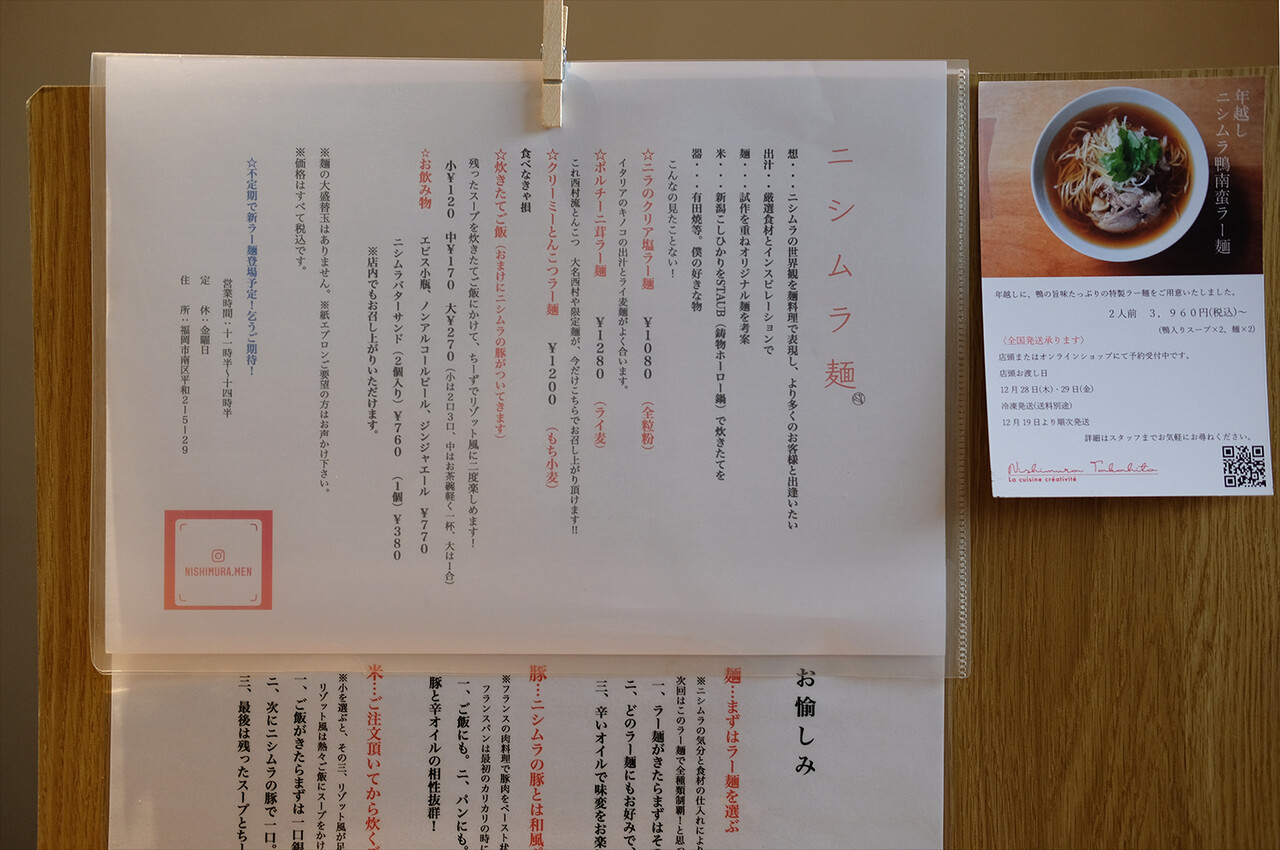 ニシムラ麺
想・・・ニシムラの世界観を麺料理で表現し、より多くのお客様と出逢いたい
出汁・・厳選食材とインスピレーションで
麺・・・試作を重ねオリジナル麺を考案
米・・・新潟こしひかりをSTAUB（鋳物ホーロー鍋）で炊きたてを
器・・・有田焼等。僕の好きな物
こんなの見たことない！
☆ニラのクリア塩ラー麺　￥1080　（全粒粉）
イタリアのキノコの出汁とライ麦麺がよく合います。
☆ポルチーニ茸ラー麺　￥1280　（ライ麦）
これ西村流とんこつ　大名西村や限定麺が、今だけこちらでお召し上がり頂けます!!
☆クリーミーとんこつラー麺　￥1200　（もち小麦）
食べなきゃ損
☆炊きたてご飯（おまけにニシムラの豚がついてきます）
残ったスープを炊きたてご飯にかけて、ちーずでリゾット風に二度楽しめます！
小￥120　中￥170　大￥270（小は2口3口、中はお茶碗軽く一杯、大は1合）
☆お飲み物　エビス小瓶、ノンアルコールビール、ジンジャエール　￥770
ニシムラバターサンド（2個入り）￥760　（1個）￥380
※店内でもお召し上がりいただけます。
※麺の大盛替玉はありません。※紙エプロンご要望の方はお声かけ下さい。
※価格はすべて税込です。
☆不定期で新ラー麺登場予定！乞うご期待！
営業時間：十一時半～十四時半
定　休：金曜日
住　所：福岡市南区平和2-5-129
NISHIMURA.MEN
お愉しみ
麺…まずはラー麺を選ぶ
※ニシムラの気分と食材の仕入れにより
次回はこのラー麺で全種類制覇！と思っ
一、ラー麺がきたらまずはその
二、どのラー麺にもお好みで、
三、辛いオイルで味変をお楽
豚…ニシムラの豚とは和風
※フランスの肉料理で豚肉をペースト状
フランスパンは最初のカリカリの時に
一、ご飯にも。二、パンにも。
豚と辛オイルの相性抜群！
米…ご注文頂いてから炊くご
※小を選ぶと、その三、リゾット風が足
リゾット風は熱々ご飯にスープをかけ
一、ご飯がきたらまずは一口銀
二、次にニシムラの豚で一口。
三、最後は残ったスープとち
年越し
ニシムラ鴨南蛮ラー麺
年越しに、鴨の旨味たっぷりの特製ラー麺をご用意いたしました。
2人前　3,960円(税込)～
(鴨入りスープ×2、麺×2)
〈全国発送承ります〉
店頭またはオンラインショップにて予約受付中です。
店頭お渡し日
12月28日(木)・29日(金)
冷凍発送(送料別途)
12月19日より順次発送
詳細はスタッフまでお気軽にお尋ねください。
Nishimura Takahito
La cuisine créativité